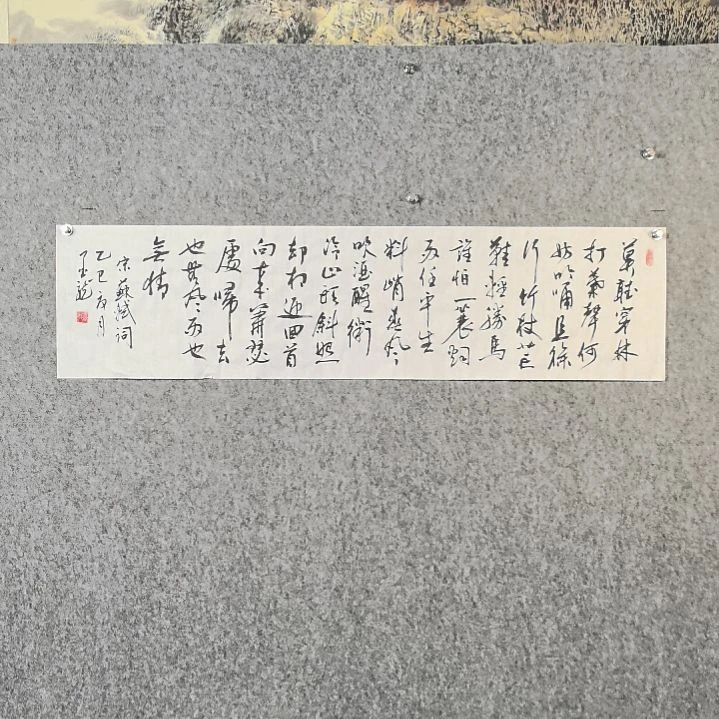 莫聽穿林
打葉聲何
妨吟嘯且徐
行竹杖芒
鞋輕勝馬
誰怕一蓑烟
雨任平生
料峭春風
吹酒醒微
冷山頭斜照
却相迎回首
向来蕭瑟
處歸去
也無風雨也
無晴
宋蘇軾詞
乙巳夏月